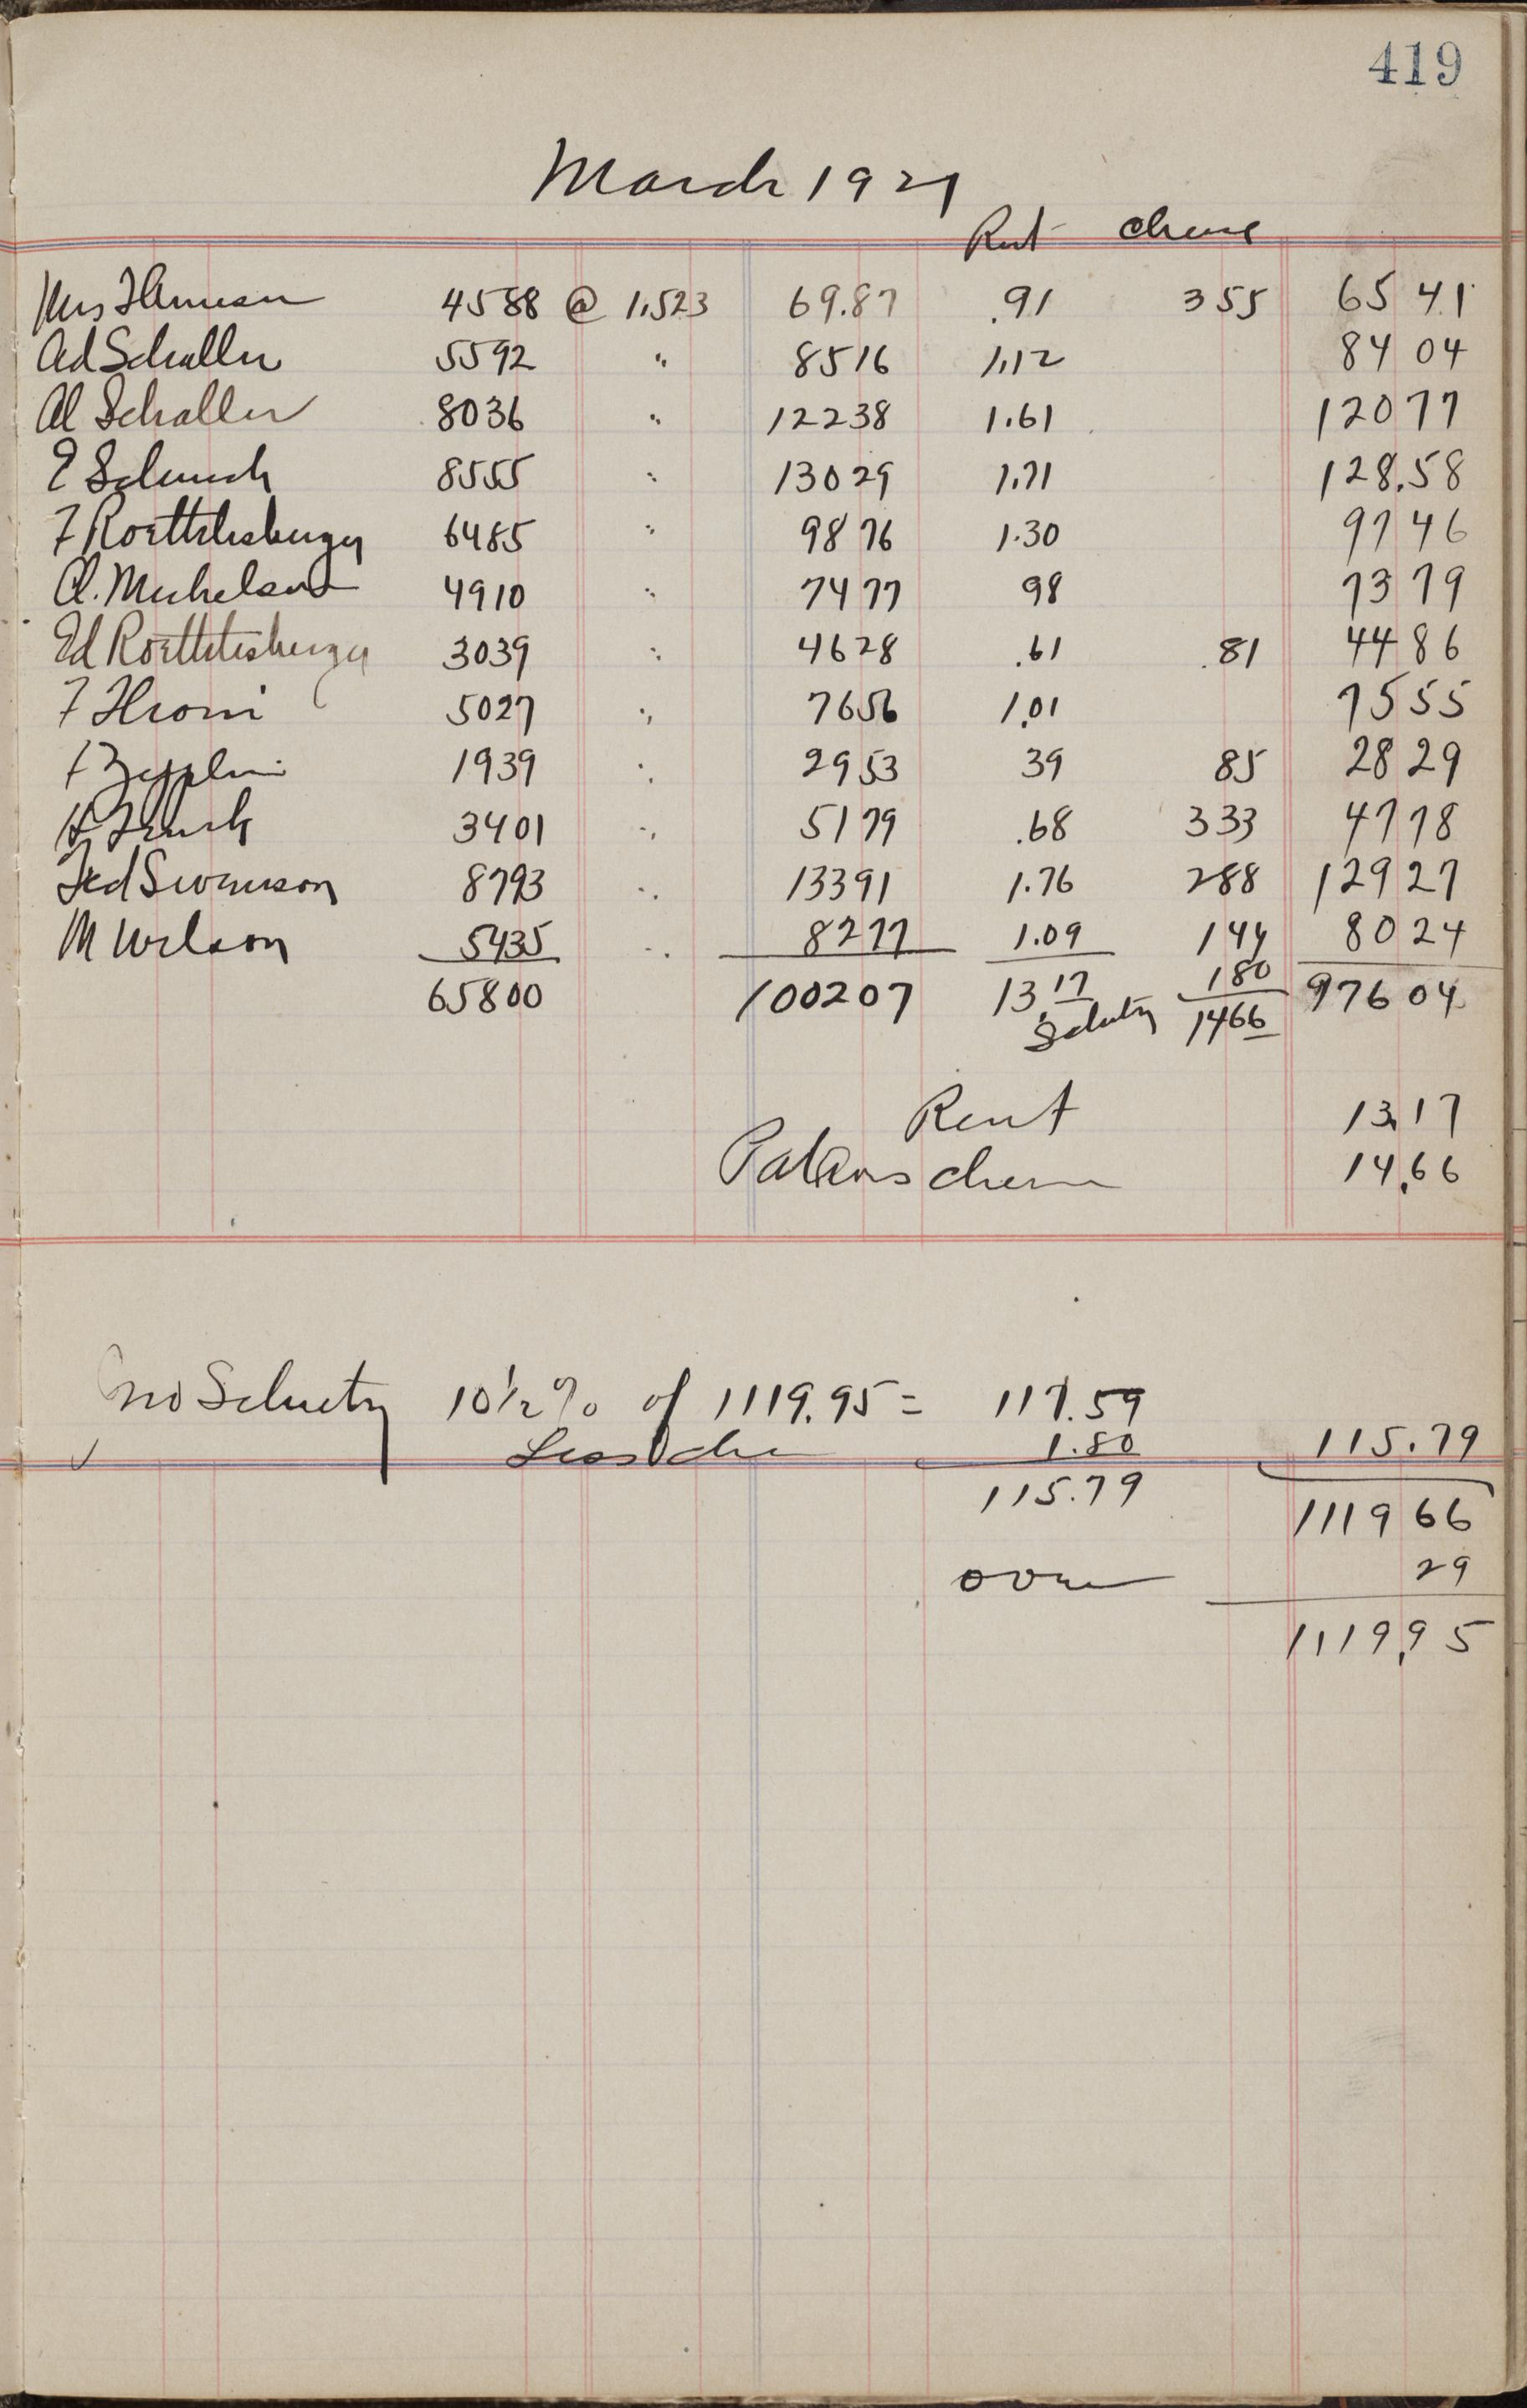 419
March 1927
Rent cheese
Mrs 4588 @ 1.523 69.87 .91 355 65 41
Ad Schaller 5592 " 85 16 1.12 84 04
Al Schaller 8036 " 122 38 1.61 120 77
E Schuech 8555 " 130 29 1.71 128.58
F Roethlisberger 6485 " 98 76 1.30 97 46
Cl. Michelson 4910 " 74 77 98 73 79
Ed Roethlisberger 3039 " 46 28 .61 .81 44 86
F 5027 " 76 56 1.01 75 55
1939 " 29 53 39 85 28 29
3401 " 51 79 .68 333 47 78
Ted Swenson 8793 " 133 91 1.76 288 129 27
M Wilson 5435 " 82 77 1.09 144 80 24
65800 1002 07 13.17 180 976 04
Schuetz 1466
Rent 13.17
Patrons cheese 14.66
No Schuetz 10½% of 1119.95 = 117.59
Less che 1.80 115.79
115.79 1119 66
over 29
1119.95